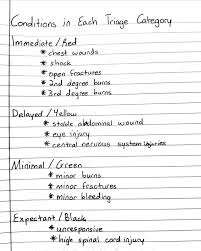 Conditions in Each Triage Category
Immediate / Red
* chest wounds
* shock
* open fractures
* 2nd degree burns
* 3rd degree burns
Delayed / Yellow
* stable abdominal wound
* eye injury
* central nervous system injuries
Minimal / Green
* minor burns
* minor fractures
* minor bleeding
Expectant / Black
* unresponsive
* high spinal cord injury